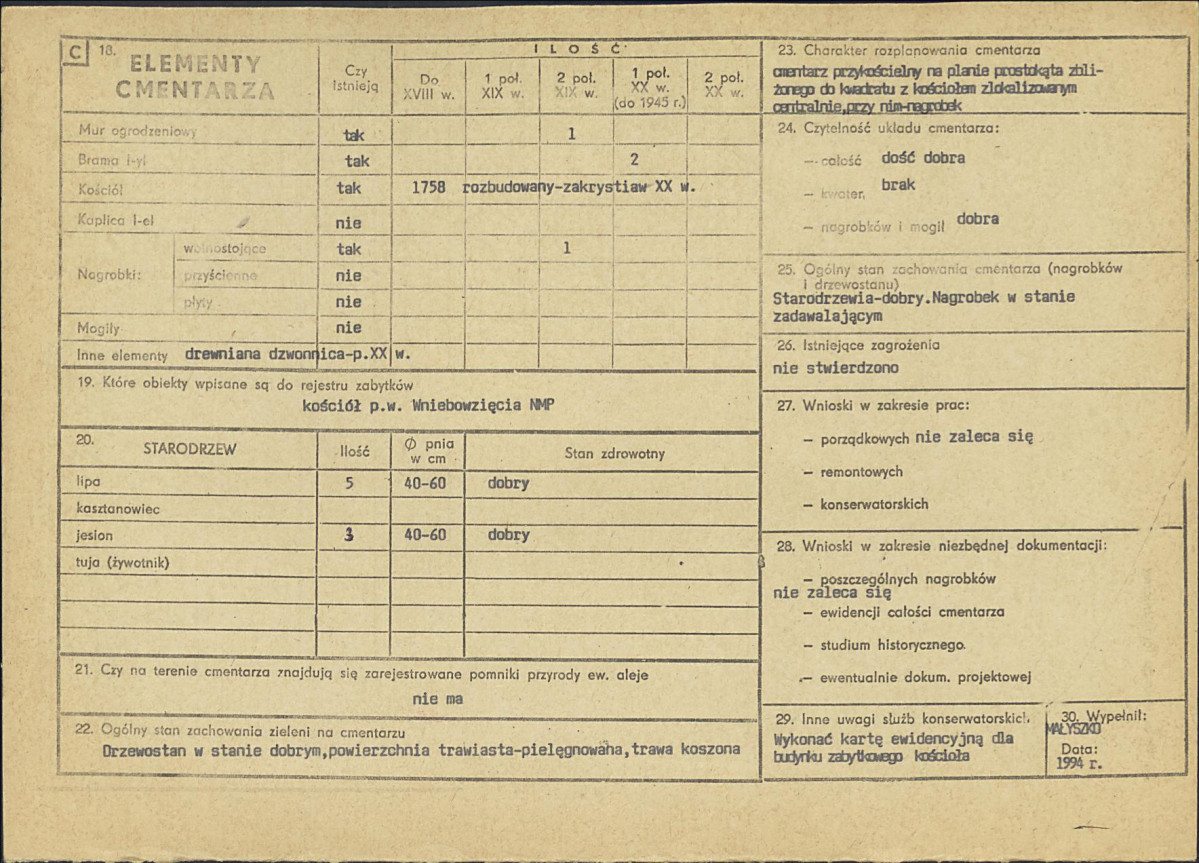 C 18. ELEMENTY CMENTARZA
Czy istnieją
ILOŚĆ
Do XVIII w.
1 poł. XIX w.
2 poł. XIX w.
1 poł. XX w. (do 1945 r.)
2 poł. XX w.
Mur ogrodzeniowy tak 1
Brama (-y) tak 2
Kościół tak 1758 rozbudowany-zakrystiaw XX w.
Kaplica (-e) nie
Nagrobki: wolnostojące tak 1
przyścienne nie
płyty nie
Mogiły nie
Inne elementy drewniana dzwonnica-p.XX w.
19. Które obiekty wpisane są do rejestru zabytków
kościół p.w. Wniebowzięcia NMP
20. STARODRZEW Ilość Ø pnia w cm Stan zdrowotny
lipa 5 40-60 dobry
kasztanowiec
jesion 3 40-60 dobry
tuja (żywotnik)
21. Czy na terenie cmentarza znajdują się zarejestrowane pomniki przyrody ew. aleje
nie ma
22. Ogólny stan zachowania zieleni na cmentarzu
Drzewostan w stanie dobrym,powierzchnia trawiasta-pielęgnowana,trawa koszona
23. Charakter rozplanowania cmentarza
cmentarz przykościelny na planie prostokąta zbli-
żonego do kwadratu z kościołem zlokalizowanym
centralnie,przy nim-nagrobek
24. Czytelność układu cmentarza:
— całość dość dobra
— kwater, brak
— nagrobków i mogił dobra
25. Ogólny stan zachowania cmentarza (nagrobków
i drzewostanu)
Starodrzewia-dobry.Nagrobek w stanie
zadawalającym
26. Istniejące zagrożenia
nie stwierdzono
27. Wnioski w zakresie prac:
— porządkowych nie zaleca się
— remontowych
— konserwatorskich
28. Wnioski w zakresie niezbędnej dokumentacji:
— poszczególnych nagrobków
nie zaleca się
— ewidencji całości cmentarza
— studium historycznego
— ewentualnie dokum. projektowej
29. Inne uwagi służb konserwatorskich
Wykonać kartę ewidencyjną dla
budynku zabytkowego kościoła
30. Wypełnił:
MAŁYSZKO
Data:
1994 r.